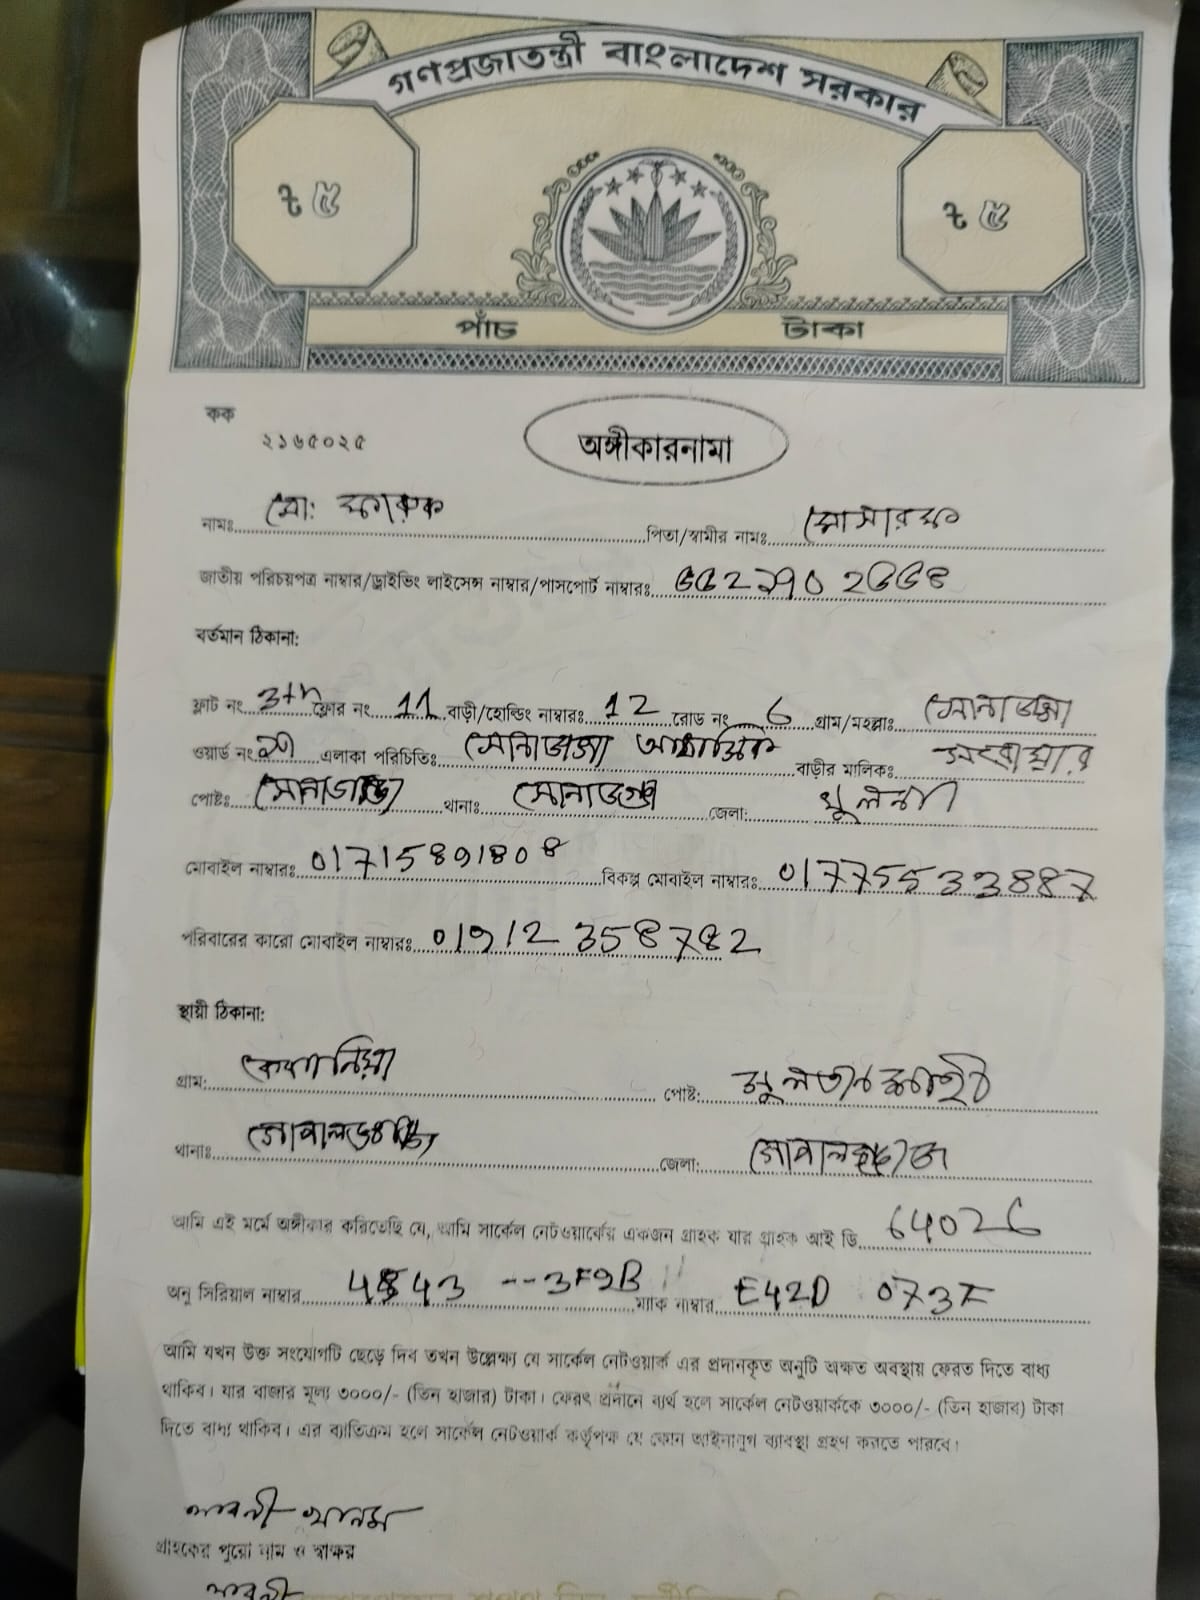 গণপ্রজাতন্ত্রী বাংলাদেশ সরকার
৳ ৫ ৳ ৫
পাঁচ টাকা
কক
২১৬৫০২৫
অঙ্গীকারনামা
নামঃ মো: ফারুক পিতা/স্বামীর নামঃ
জাতীয় পরিচয়পত্র নাম্বার/ড্রাইভিং লাইসেন্স নাম্বার/পাসপোর্ট নাম্বারঃ
বর্তমান ঠিকানা:
ফ্লাট নং 3th ফ্লোর নং 11 বাড়ী/হোল্ডিং নাম্বারঃ 12 রোড নং 6 গ্রাম/মহল্লাঃ সোনাডাঙ্গা
ওয়ার্ড নং এলাকা পরিচিতিঃ সোনাডাঙ্গা আবাসিক বাড়ীর মালিকঃ
পোষ্টঃ সোনাডাঙ্গা থানাঃ সোনাডাঙ্গা জেলা: খুলনা
মোবাইল নাম্বারঃ 01715891808 বিকল্প মোবাইল নাম্বারঃ 01775533887
পরিবারের কারো মোবাইল নাম্বারঃ 01912 358782
স্থায়ী ঠিকানা:
গ্রাম: পোষ্ট:
থানাঃ গোপালগঞ্জ জেলা: গোপালগঞ্জ
আমি এই মর্মে অঙ্গীকার করিতেছি যে, আমি সার্কেল নেটওয়ার্কের একজন গ্রাহক যার গ্রাহক আই ডি 64026
অনু সিরিয়াল নাম্বার 4843 --3F9B ম্যাক নাম্বার E42D 073F
আমি যখন উক্ত সংযোগটি ছেড়ে দিব তখন উল্লেক্ষ্য যে সার্কেল নেটওয়ার্ক এর প্রদানকৃত অনুটি অক্ষত অবস্থায় ফেরত দিতে বাধ্য
থাকিব। যার বাজার মূল্য ৩০০০/- (তিন হাজার) টাকা। ফেরৎ প্রদানে ব্যর্থ হলে সার্কেল নেটওয়ার্ককে ৩০০০/- (তিন হাজার) টাকা
দিতে বাধ্য থাকিব। এর ব্যতিক্রম হলে সার্কেল নেটওয়ার্ক কর্তৃপক্ষ যে কোন আইনানুগ ব্যাবস্থা গ্রহণ করতে পারবে।
লাবনী খানম
গ্রাহকের পুরো নাম ও স্বাক্ষর
লাবনী